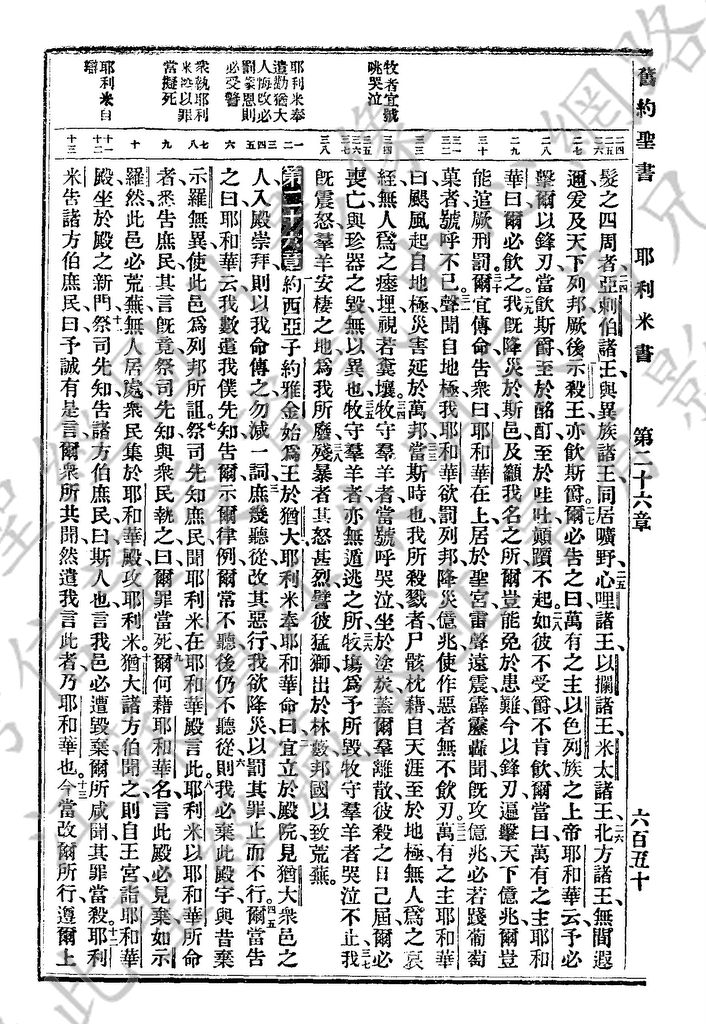 舊約聖書 耶利米書 第二十六章 六百五十
髮之四周者亞剌伯諸王與異族諸王同居曠野心哩諸王以攔諸王米太諸王北方諸王無間遐
邇爰及天下列邦厥後示殺王亦飲斯爵爾必告之曰萬有之主以色列族之上帝耶和華云予必
擊爾以鋒刃當飲斯爵至於酩酊至於哇吐顚躓不起如彼不受爵不肯飲爾當曰萬有之主耶和
華曰爾必飲之我旣降災於斯邑及籲我名之所爾豈能免於患難今以鋒刃逼擊天下億兆爾豈
能逭厥刑罰爾宜傳命告衆曰耶和華在上居於聖宮雷聲遠震霹靂轟聞旣攻億兆必若踐葡萄
菓者號呼不已聲聞自地極我耶和華欲罰列邦降災億兆使作惡者無不飲刃萬有之主耶和華
曰颶風起自地極災害延於萬邦當斯時也我所殺戮者尸骸枕藉自天涯至於地極無人爲之哀
經無人爲之瘞埋視若糞壤牧守羣羊者當號呼哭泣坐於塗炭蓋爾羣離散彼殺之日已屆爾必
喪亡與珍器之毀無以異也牧守羣羊者亦無遁逃之所牧塲爲予所毀牧守羣羊者哭泣不止我
旣震怒羣羊安棲之地爲我所廢殘暴者其怒甚烈譬彼猛獅出於林藪邦國以致荒蕪
第二十六章 約西亞子約雅金始爲王於猶大耶利米奉耶和華命曰宜立於殿院見猶大衆邑之
人入殿崇拜則以我命傳之勿減一詞庶幾聽從改其惡行我欲降災以罰其罪止而不行爾當告
之曰耶和華云我數遣我僕先知告爾示爾律例爾常不聽後仍不聽從則我必棄此殿宇與昔棄
示羅無異使此邑爲列邦所詛祭司先知庶民聞耶利米在耶和華殿言此耶利米以耶和華所命
者悉告庶民其言旣竟祭司先知與衆民執之曰爾罪當死爾何藉耶和華名言此殿必見棄如示
羅然此邑必荒蕪無人居處衆民集於耶和華殿攻耶利米猶大諸方伯聞之則自王宮詣耶和華
殿坐於殿之新門祭司先知告諸方伯庶民曰斯人也言我邑必遭毀棄爾所咸聞其罪當殺耶利
米告諸方伯庶民曰予誠有是言爾衆所共聞然遣我言此者乃耶和華也今當改爾所行遵爾上
牧者宜號
咷哭泣
耶利米奉
遣勸猶大
人悔改必
罰蒙恩則
必受警
衆執耶利
米以罪
當擬死
耶利米自